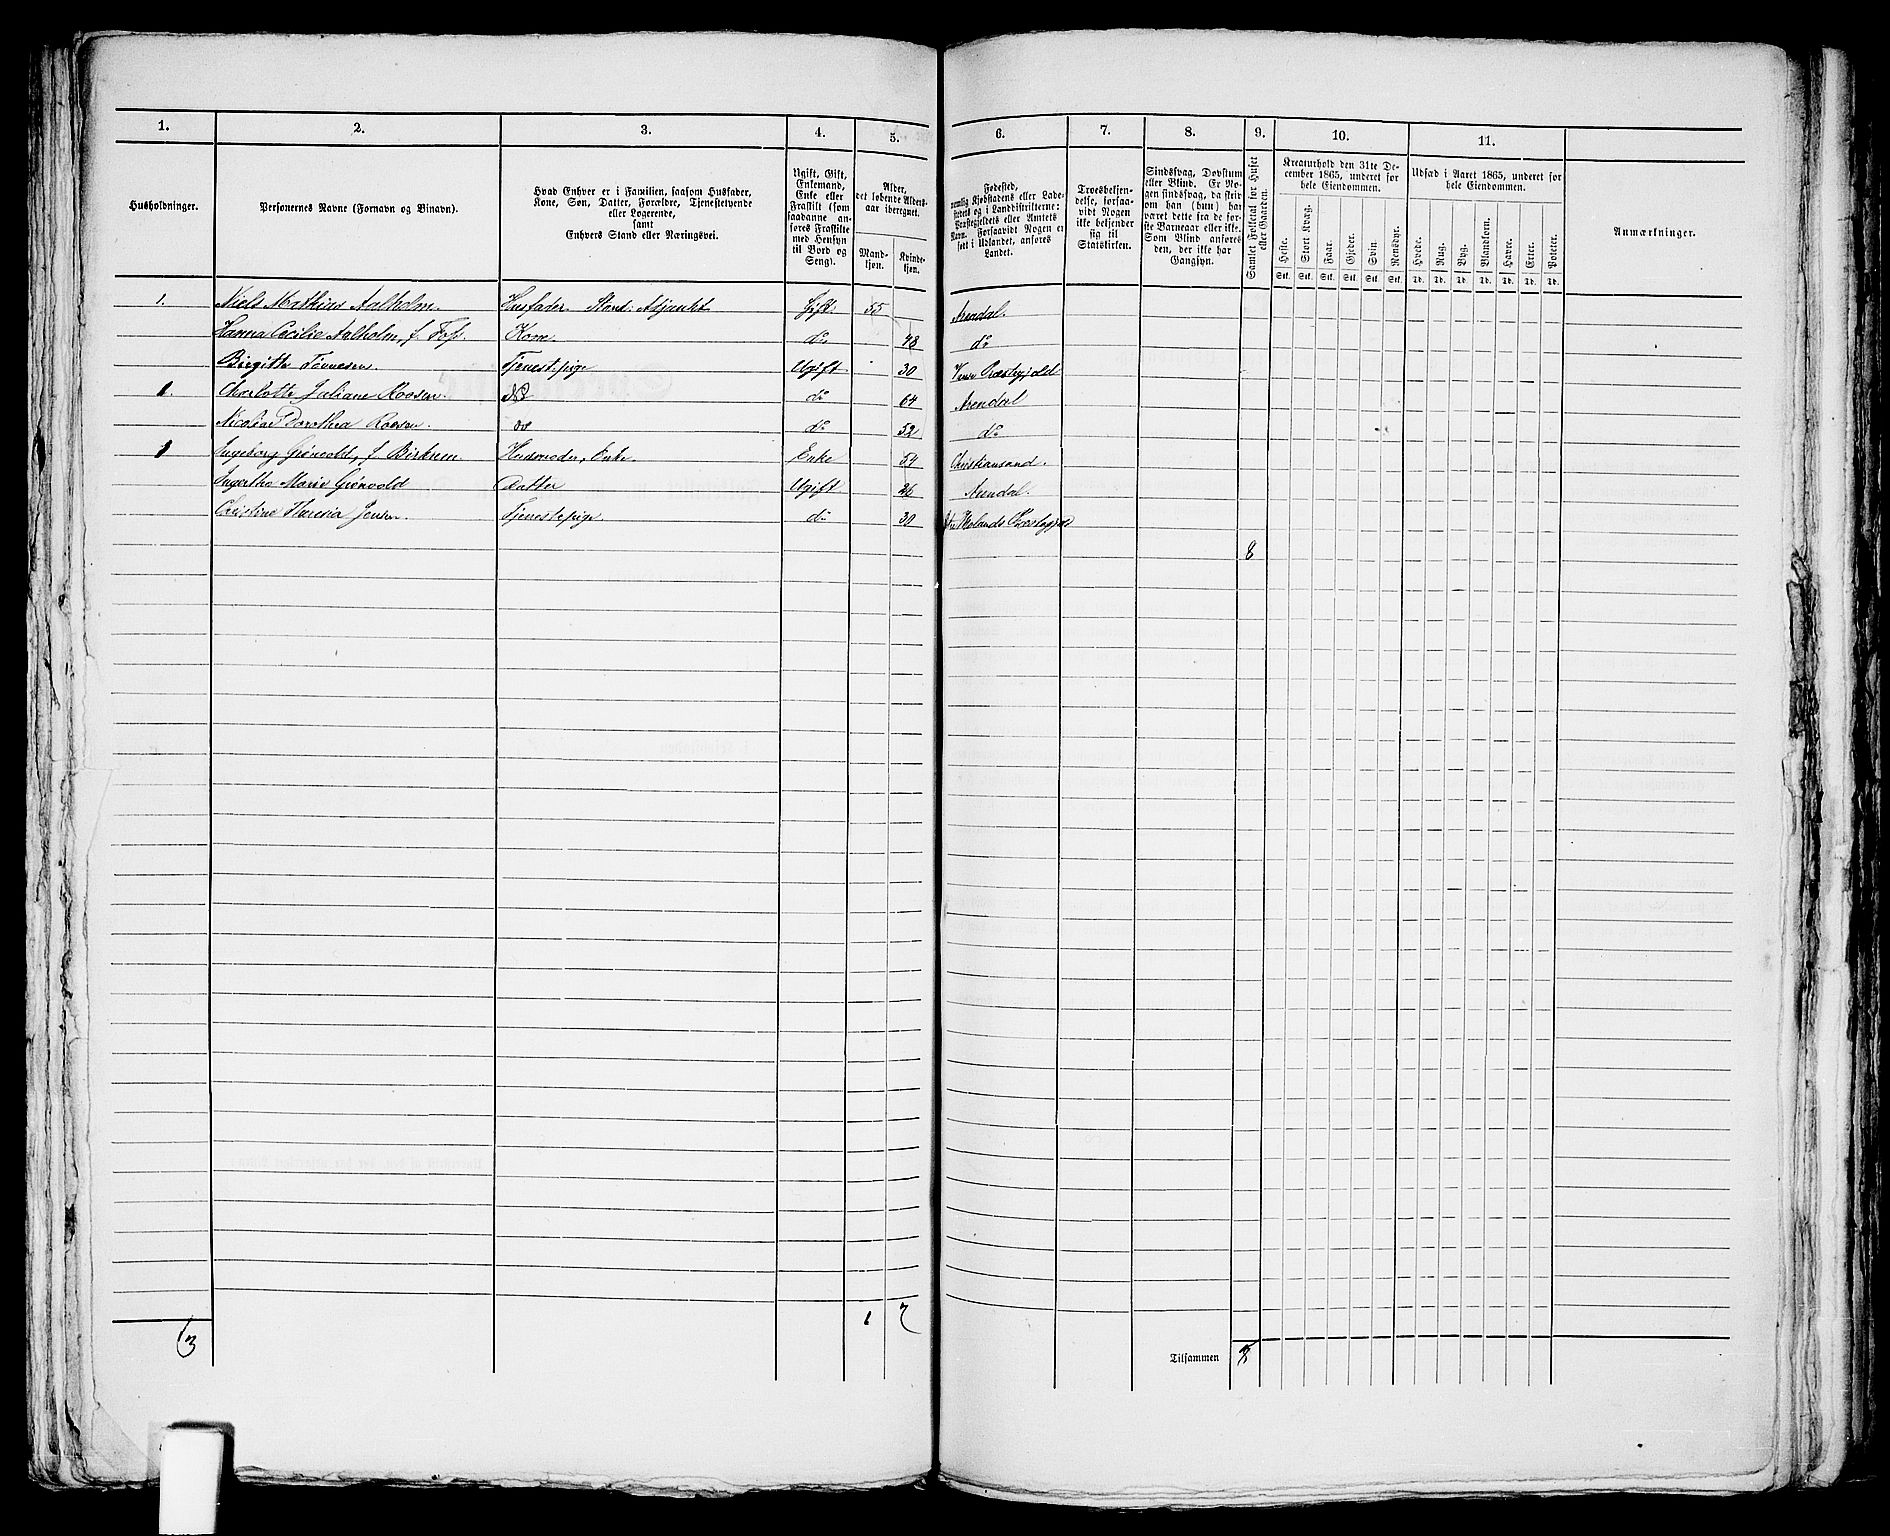 1. 2. 3. 4. 5. 6. 7. 8. 9. 10. 11.
Husholdninger.
Personernes Navne (Fornavn og Binavn).
Hvad Enhver er i Familien, saasom Husfader,
Kone, Søn, Datter, Forældre, Tjenestetyende
eller Logerende,
samt
Enhvers Stand eller Næringsvei.
Ugift, Gift,
Enkemand,
Enke eller
Fraskilt (som
saadanne an-
føres Fraskilte
med Hensyn
til Bord og
Seng).
Alder,
det løbende Alders-
aar iberegnet.
Mand-
kjøn.
Kvinde-
kjøn.
Fødested,
nemlig Kjøbstadens eller Lade-
stedets og i Landdistrikterne:
Præstegjeldets eller Amtets
Navn. Forsaavidt Nogen er
født i Udlandet, anføres
Landet.
Troesbekjen-
delse, forsaa-
vidt Nogen
ikke bekjender
sig til
Statskirken.
Sindssvag, Døvstum
eller Blind. Er No-
gen sindssvag, da skri-
ves om han (hun) har
været dette fra de før-
ste Barneaar eller ikke.
Som Blind anføres
den, der ikke har
Gangsyn.
Samlet Folketal for Huset
eller Gaarden.
Kreaturhold den 31te De-
cember 1865, underet for
hele Eiendommen.
Heste. Stort Kvæg. Faar. Gjeder. Svin. Rensdyr.
Stk. Stk. Stk. Stk. Stk. Stk.
Udsæd i Aaret 1865, underet for
hele Eiendommen.
Hvede. Rug. Byg. Blandkorn. Havre. Erter. Poteter.
Td. Td. Td. Td. Td. Td. Td.
Anmærkninger.
1. Niels Mathias Aalholm. Husfader Stand: Adjunkt Gift. 55 Arendal.
Hanna Cecilie Aalholm, f. Foss. Kone. do 48 do
Birgitte Tønnesen Tjenestepige Ugift 30 Præstegjeld
1. Charlotte Juliane Roosen. do 64 Arendal
Nicoline Dorothea Roosen. do 52 do
1 Ingeborg Grønvold, f. Husmoder, Enke. Enke 54 Christiansand.
Marie Grønvold Datter Ugift 26 Arendal.
Christine Theresia Jensen. Tjenestepige. do 30 Molands Præstegjæld
8
3 1 7
Tilsammen 8